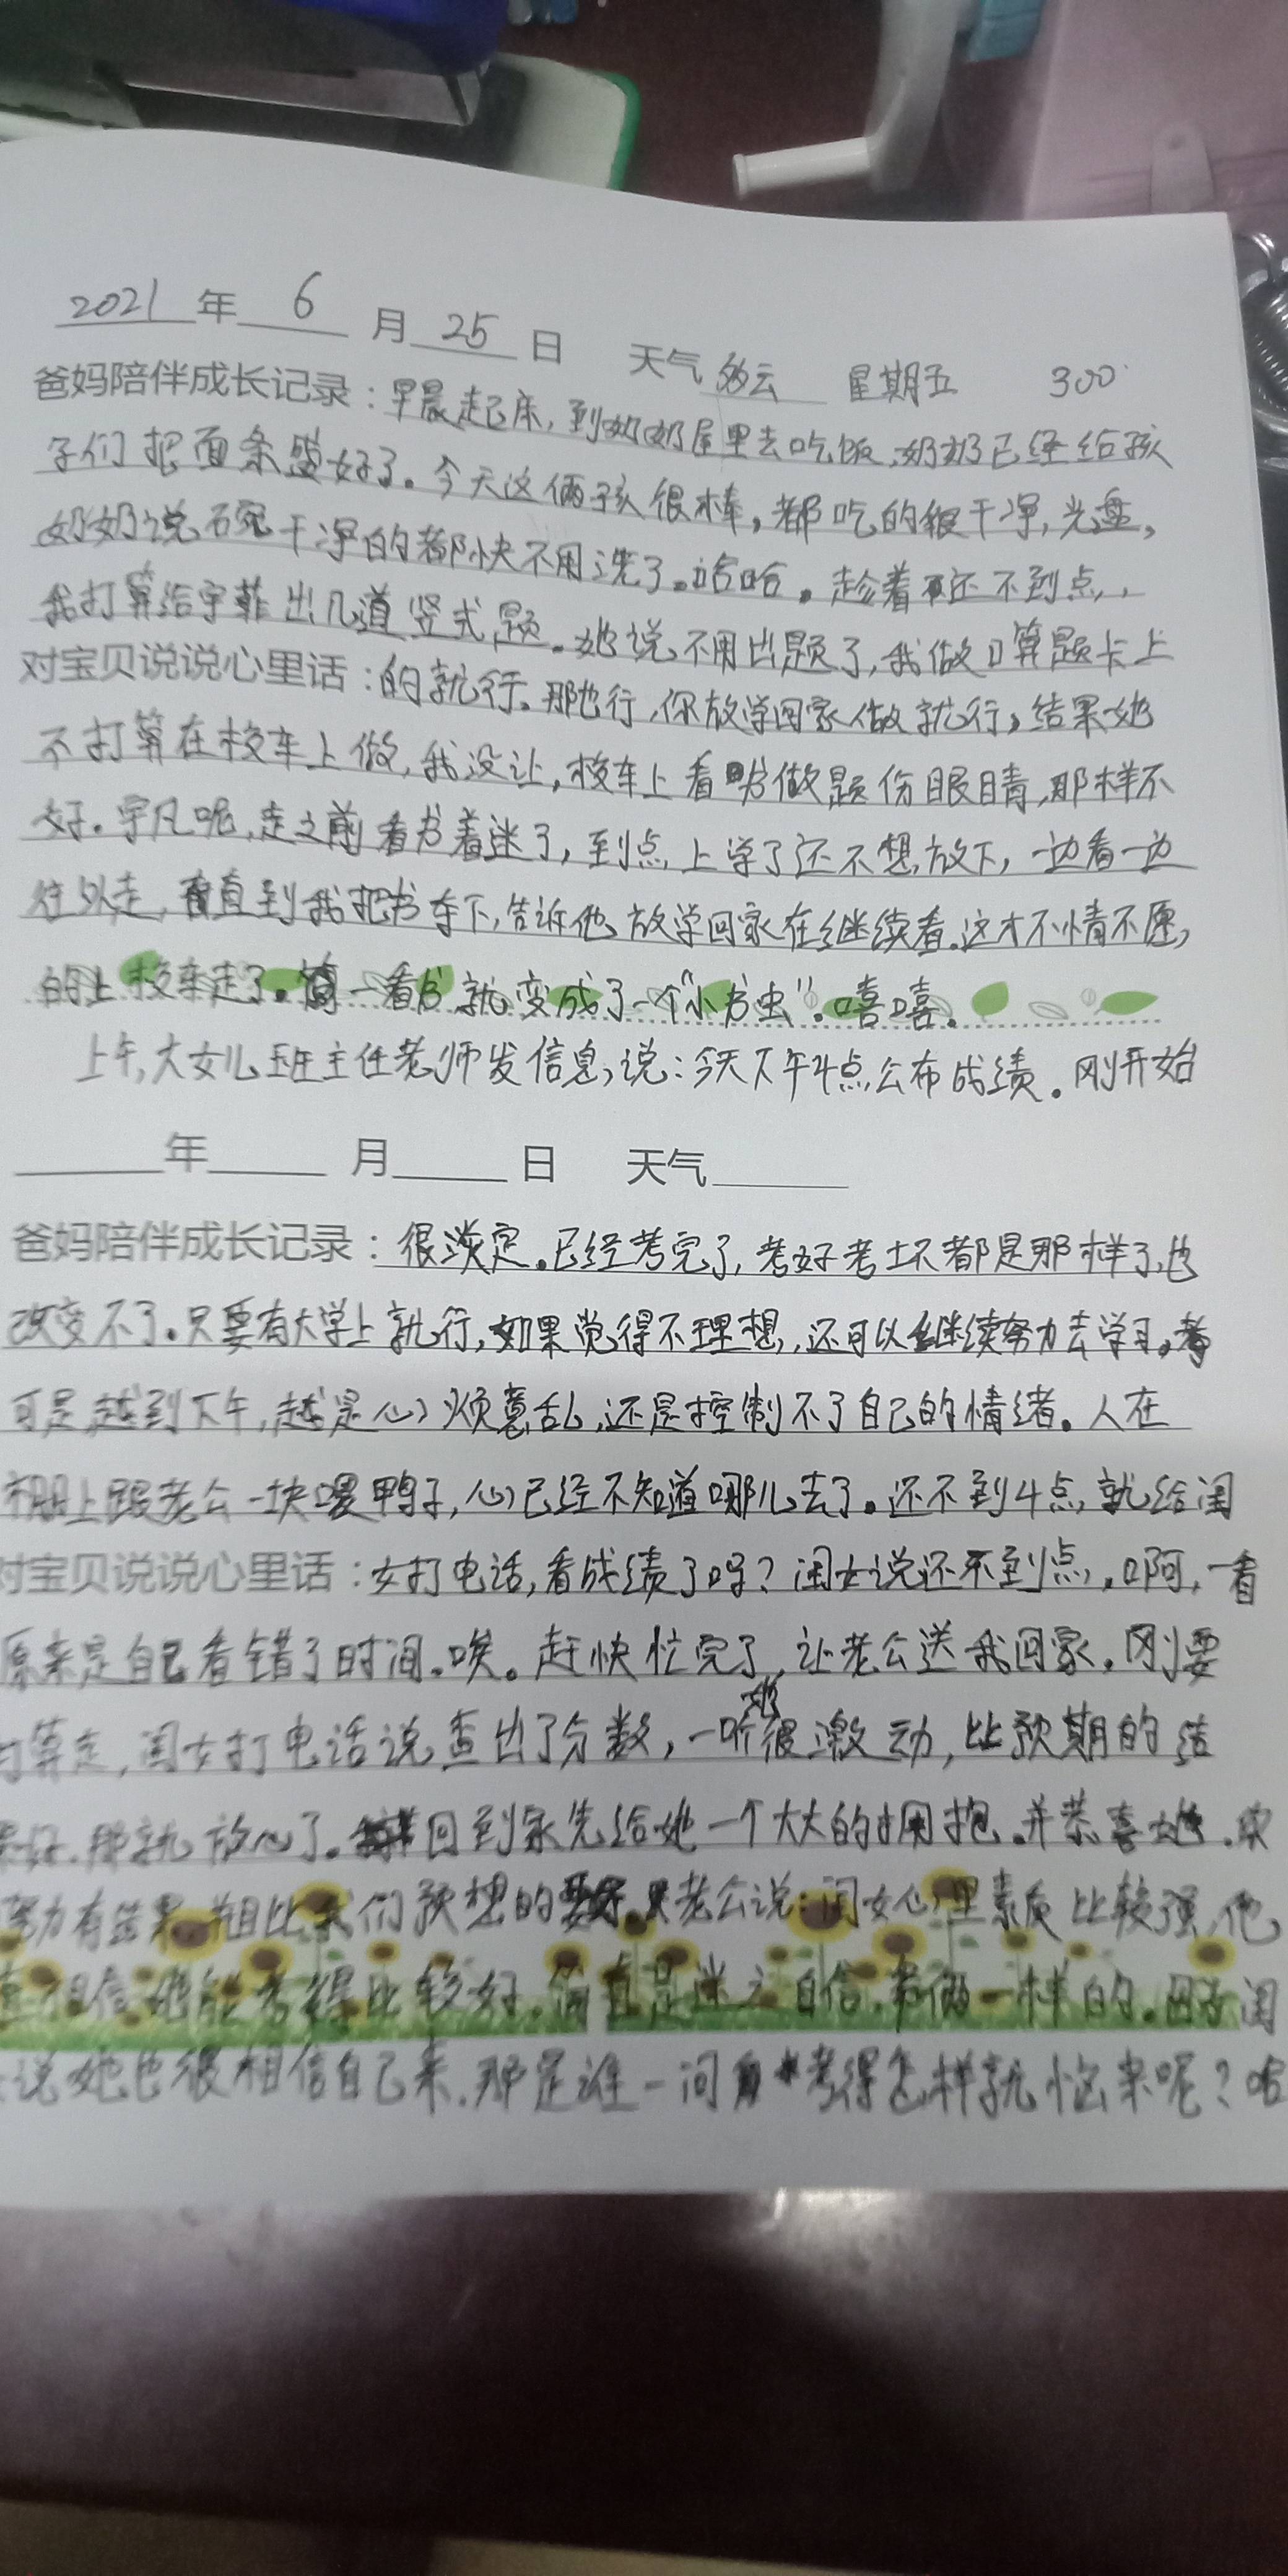 2021年 6 月 25 日 天气 多云 星期五 300
爸妈陪伴成长记录：早晨起床，到奶奶屋里去吃饭，奶奶已经给孩
子们把面条盛好了。今天这俩孩很棒，都吃的很干净，光盘，
奶奶说碗干净的都快不用洗了。哈哈。趁着还不到点，，
我打算给宇菲出几道竖式题。她说不用出题了，我做口算题卡上
对宝贝说说心里话：的就行。那也行，你放学回家做就行，结果她
不打算在校车上做，我没让，校车上看书做题伤眼睛，那样不
好。宇凡呢，走之前看书着迷了，到点上学了还不想放下，一边看一边
往外走，直到我把书夺下，告诉他放学回家在继续看。这才不情不愿，
的上校车走了。一看书就变成了一个“小书虫”。嘻嘻。
上午，大女儿班主任老师发信息，说：今天下午4点公布成绩。刚开始
年 月 日 天气
爸妈陪伴成长记录：很淡定。已经考完了，考好考坏都是那样了，也
改变不了。只要有大学上就行，如果觉得不理想，还可以继续努力去学习，
可是，越到下午，越是心烦意乱，还是控制不了自己的情绪。人在
棚上跟老公一块喂鸭子，心已经不知道哪儿去了。还不到4点，就给闺
对宝贝说说心里话：女打电话，看成绩了吗？闺女说还不到点，啊，一看
原来是自己看错了时间。唉。赶快忙完了，让老公送我回家。刚要
打算走，闺女打电话说查出了分数，一听很激动，比预期的结
果好，那就放心了。回到家先给她一个大大的拥抱。并恭喜她，
努力有结果，相比我们预想的要好。老公说：闺女心里素质比较强，他
相信她能考得比较好。简直是迷之自信，俩一样的。闺
说她也很相信自己来，那是谁一问考得怎样就恼来呢？哈